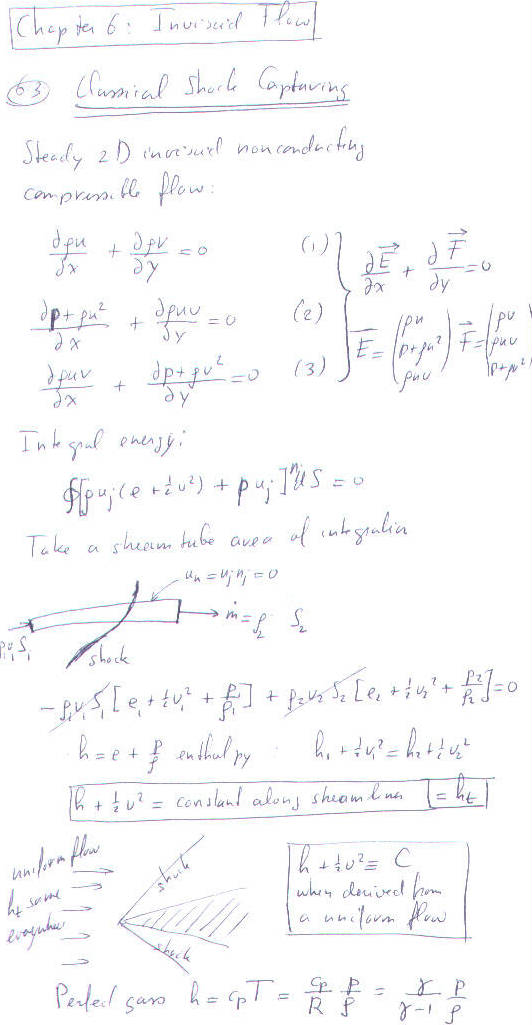 Chapter 6: Inviscid Flow
6.3 Classical Shock Capturing
Steady 2D inviscid nonconducting
compressible flow:
∂ρu/∂x + ∂ρv/∂y = 0 (1)
∂E⃗/∂x + ∂F⃗/∂y = 0
∂p+ρu²/∂x + ∂ρuv/∂y = 0 (2)
E⃗ = (ρu, p+ρu², ρuv) F⃗ = (ρv, ρuv, p+ρv²)
∂ρuv/∂x + ∂p+ρv²/∂y = 0 (3)
Integral energy:
∮[ρu_j(e+½v²) + p u_j] n_j dS = 0
Take a stream tube area of integration
u_n = u_j n_j = 0
ρ₁v₁S₁
ṁ = ρ₂ S₂
shock
-ρ₁v₁S₁[e₁+½v₁²+p₁/ρ₁] + ρ₂v₂S₂[e₂+½v₂²+p₂/ρ₂] = 0
h = e + p/ρ enthalpy : h₁+½v₁² = h₂+½v₂²
h + ½v² = constant along streamlines = h_t
uniform flow
h_t same
everywhere
shock
shock
h + ½v² ≡ C
when derived from
a uniform flow
Perfect gass h = c_pT = c_p/R p/ρ = γ/γ-1 p/ρ